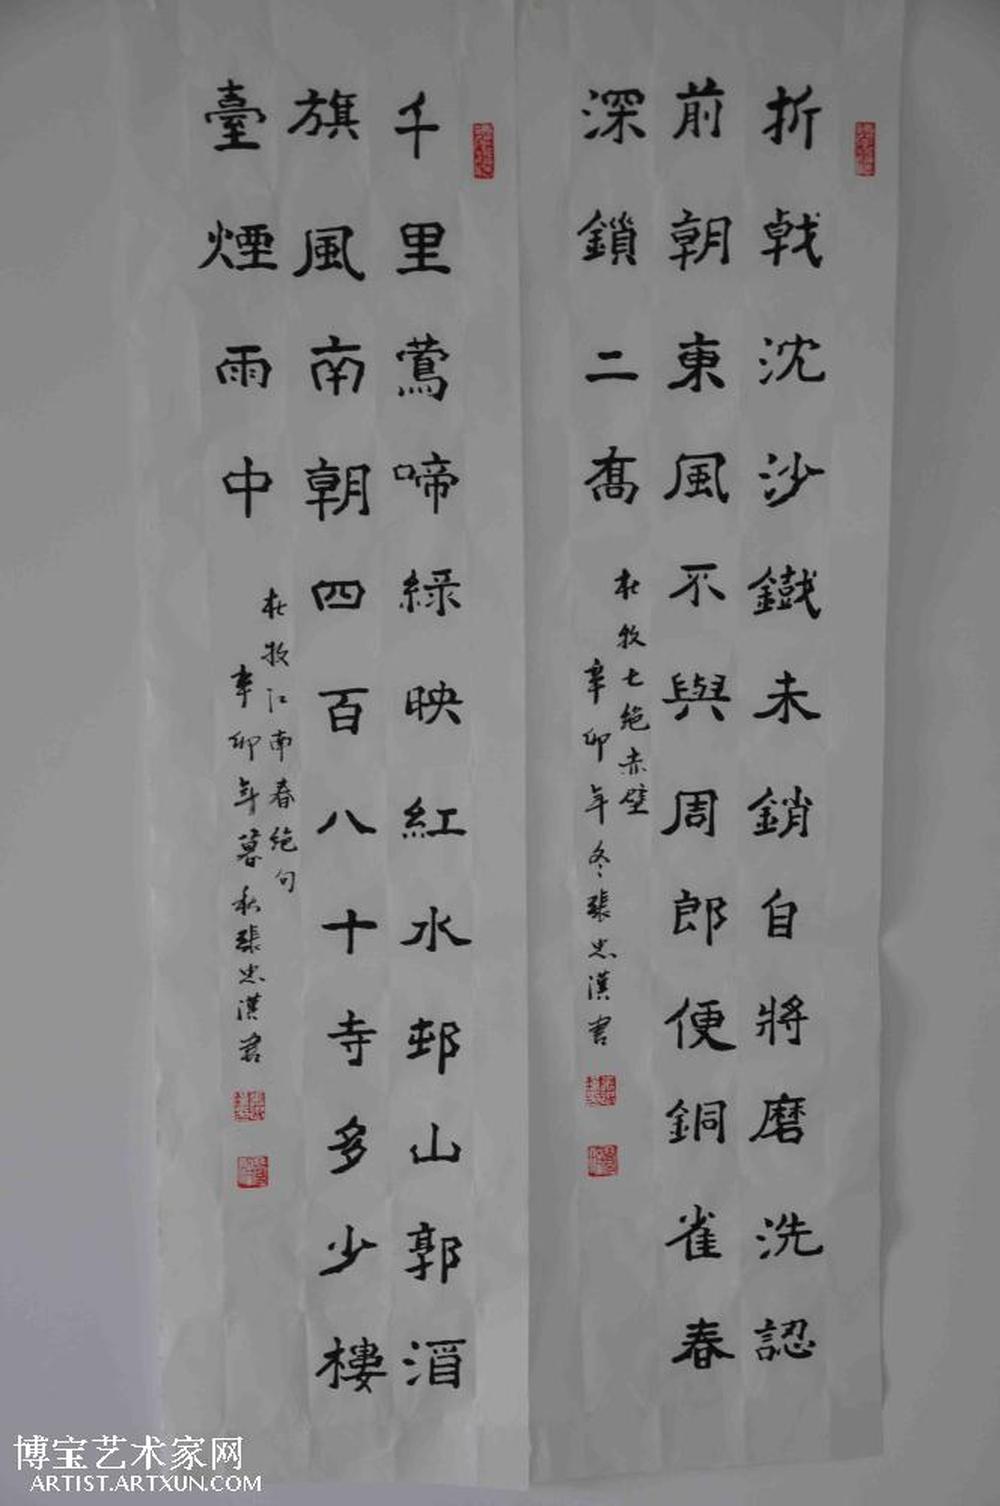 折戟沈沙鐵未銷自將磨洗認
前朝東風不與周郎便銅雀春
深鎖二喬
杜牧七绝赤壁
辛卯年冬張忠漢書
千里鶯啼綠映紅水邨山郭酒
旗風南朝四百八十寺多少樓
臺煙雨中
杜牧江南春绝句
辛卯年暮秋張忠漢書
博宝艺术家网
ARTIST.ARTXUN.COM